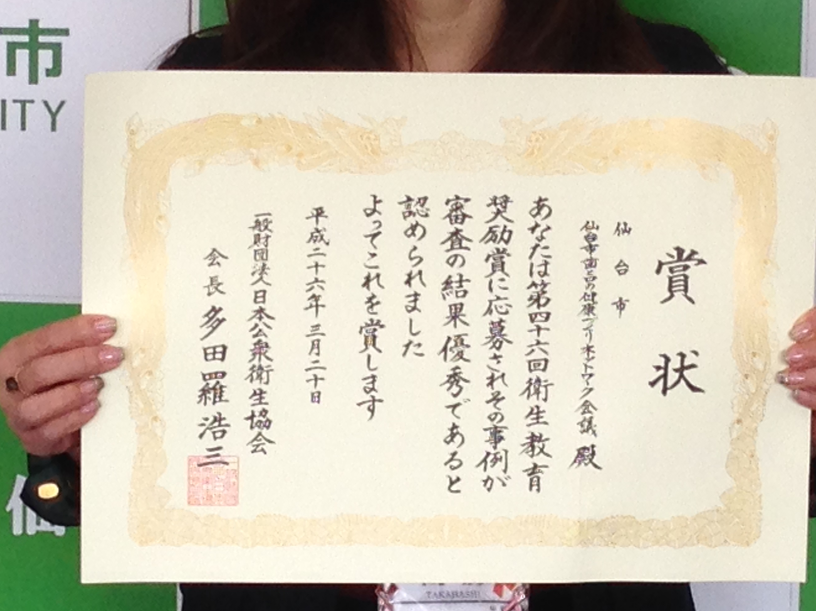 賞状
仙台市
仙台市歯と口の健康づくりネットワーク会議 殿
あなたは第四十六回衛生教育
奨励賞に応募されその事例が
審査の結果優秀であると
認められました
よってこれを賞します
平成二十六年三月二十日
一般財団法人日本公衆衛生協会
会長 多田羅浩三
市
ITY
仙
TAKAHASHI